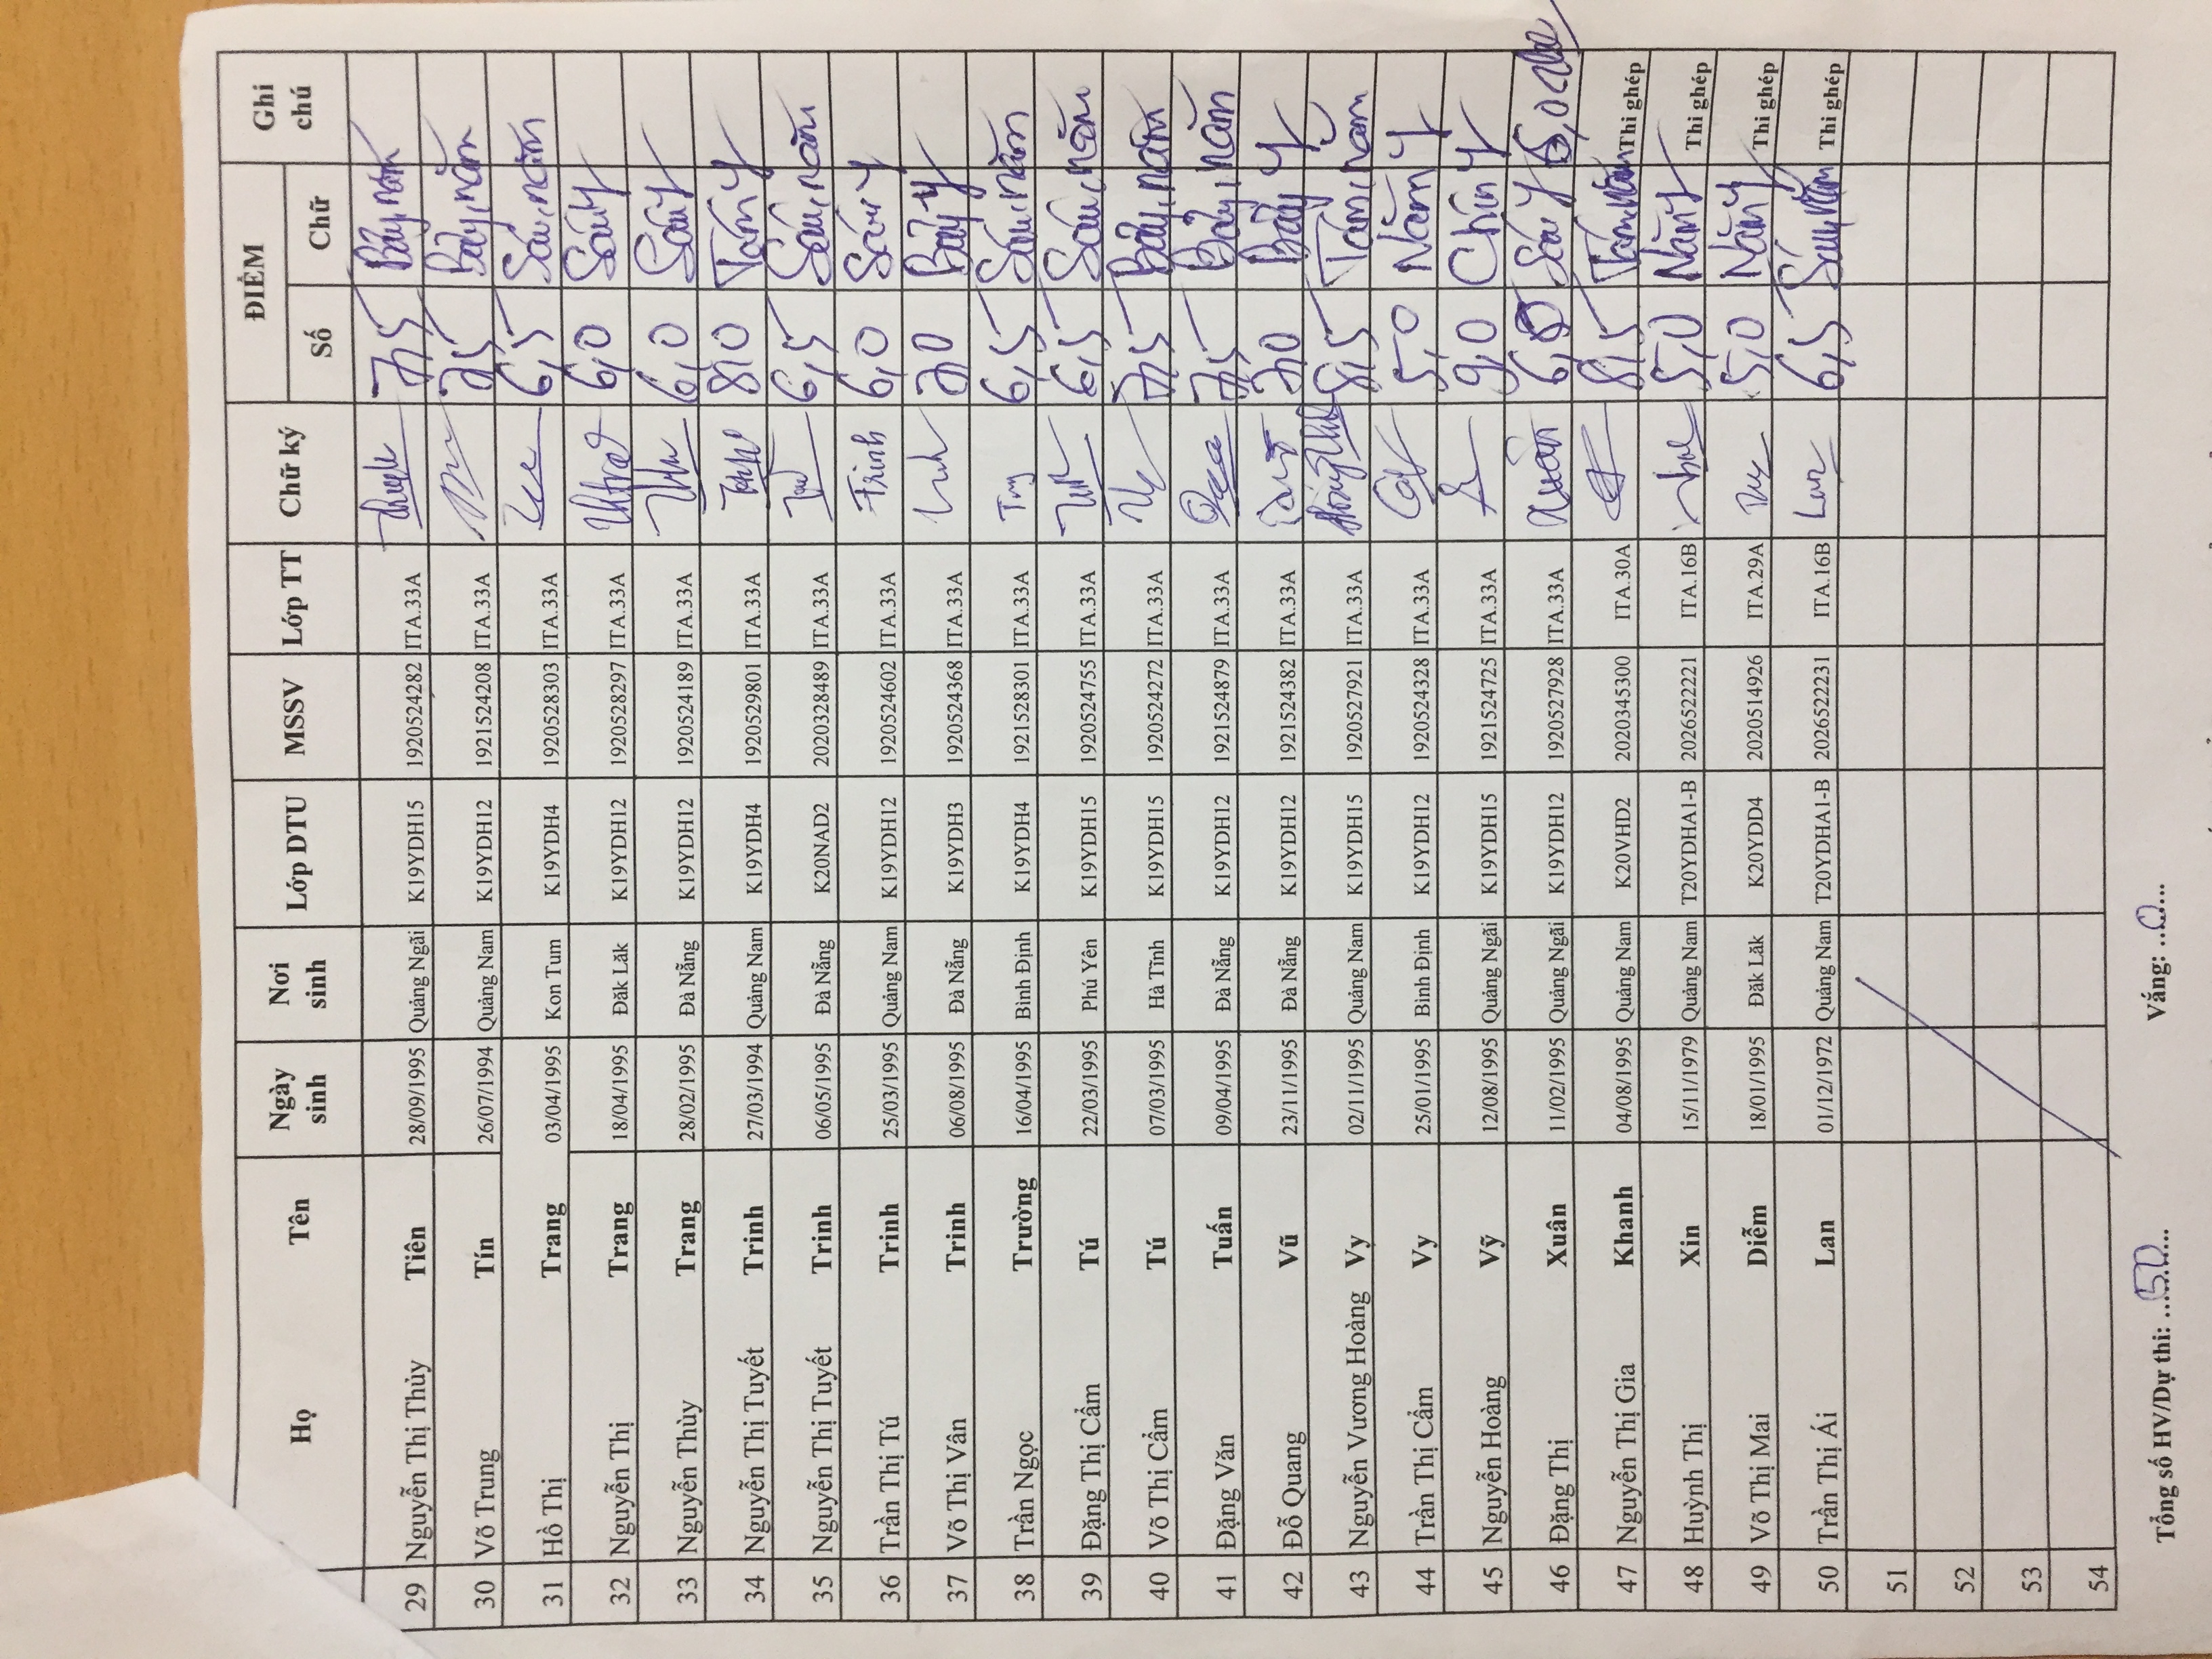 Họ Tên Ngày sinh Nơi sinh Lớp DTU MSSV Lớp TT Chữ ký ĐIỂM Ghi chú
Số Chữ
29 Nguyễn Thị Thủy Tiên 28/09/1995 Quảng Ngãi K19YDH15 1920524282 ITA.33A 7,5 Bảy, năm
30 Võ Trung Tín 26/07/1994 Quảng Nam K19YDH12 1921524208 ITA.33A 7,5 Bảy, năm
31 Hồ Thị Trang 03/04/1995 Kon Tum K19YDH4 1920528303 ITA.33A 6,5 Sáu, năm
32 Nguyễn Thị Trang 18/04/1995 Đăk Lăk K19YDH12 1920528297 ITA.33A 6,0 Sáu y
33 Nguyễn Thùy Trang 28/02/1995 Đà Nẵng K19YDH12 1920524189 ITA.33A 6,0 Sáu y
34 Nguyễn Thị Tuyết Trinh 27/03/1994 Quảng Nam K19YDH4 1920529801 ITA.33A 8,0 Tám y
35 Nguyễn Thị Tuyết Trinh 06/05/1995 Đà Nẵng K20NAD2 2020328489 ITA.33A 6,5 Sáu, năm
36 Trần Thị Tú Trinh 25/03/1995 Quảng Nam K19YDH12 1920524602 ITA.33A Trinh 6,0 Sáu y
37 Võ Thị Vân Trinh 06/08/1995 Đà Nẵng K19YDH3 1920524368 ITA.33A 7,0 Bảy y
38 Trần Ngọc Trường 16/04/1995 Bình Định K19YDH4 1921528301 ITA.33A 6,5 Sáu, năm
39 Đặng Thị Cẩm Tú 22/03/1995 Phú Yên K19YDH15 1920524755 ITA.33A 6,5 Sáu, năm
40 Võ Thị Cẩm Tú 07/03/1995 Hà Tĩnh K19YDH15 1920524272 ITA.33A 7,5 Bảy, năm
41 Đặng Văn Tuấn 09/04/1995 Đà Nẵng K19YDH12 1921524879 ITA.33A 7,5 Bảy, năm
42 Đỗ Quang Vũ 23/11/1995 Đà Nẵng K19YDH12 1921524382 ITA.33A 7,0 Bảy y
43 Nguyễn Vương Hoàng Vy 02/11/1995 Quảng Nam K19YDH15 1920527921 ITA.33A 8,5 Tám, năm
44 Trần Thị Cẩm Vy 25/01/1995 Bình Định K19YDH12 1920524328 ITA.33A 5,0 Năm y
45 Nguyễn Hoàng Vỹ 12/08/1995 Quảng Ngãi K19YDH15 1921524725 ITA.33A 9,0 Chín y
46 Đặng Thị Xuân 11/02/1995 Quảng Ngãi K19YDH12 1920527928 ITA.33A Xuân 6,0 Sáu y
47 Nguyễn Thị Gia Khanh 04/08/1995 Quảng Nam K20VHD2 2020345300 ITA.30A 8,5 Tám, năm Thi ghép
48 Huỳnh Thị Xin 15/11/1979 Quảng Nam T20YDHA1-B 2026522221 ITA.16B 5,0 Năm y Thi ghép
49 Võ Thị Mai Diễm 18/01/1995 Đăk Lăk K20YDD4 2020514926 ITA.29A 5,0 Năm y Thi ghép
50 Trần Thị Ái Lan 01/12/1972 Quảng Nam T20YDHA1-B 2026522231 ITA.16B Lan 6,5 Sáu, năm Thi ghép
51
52
53
54
Tổng số HV/Dự thi: ...50... Vắng: ...0...